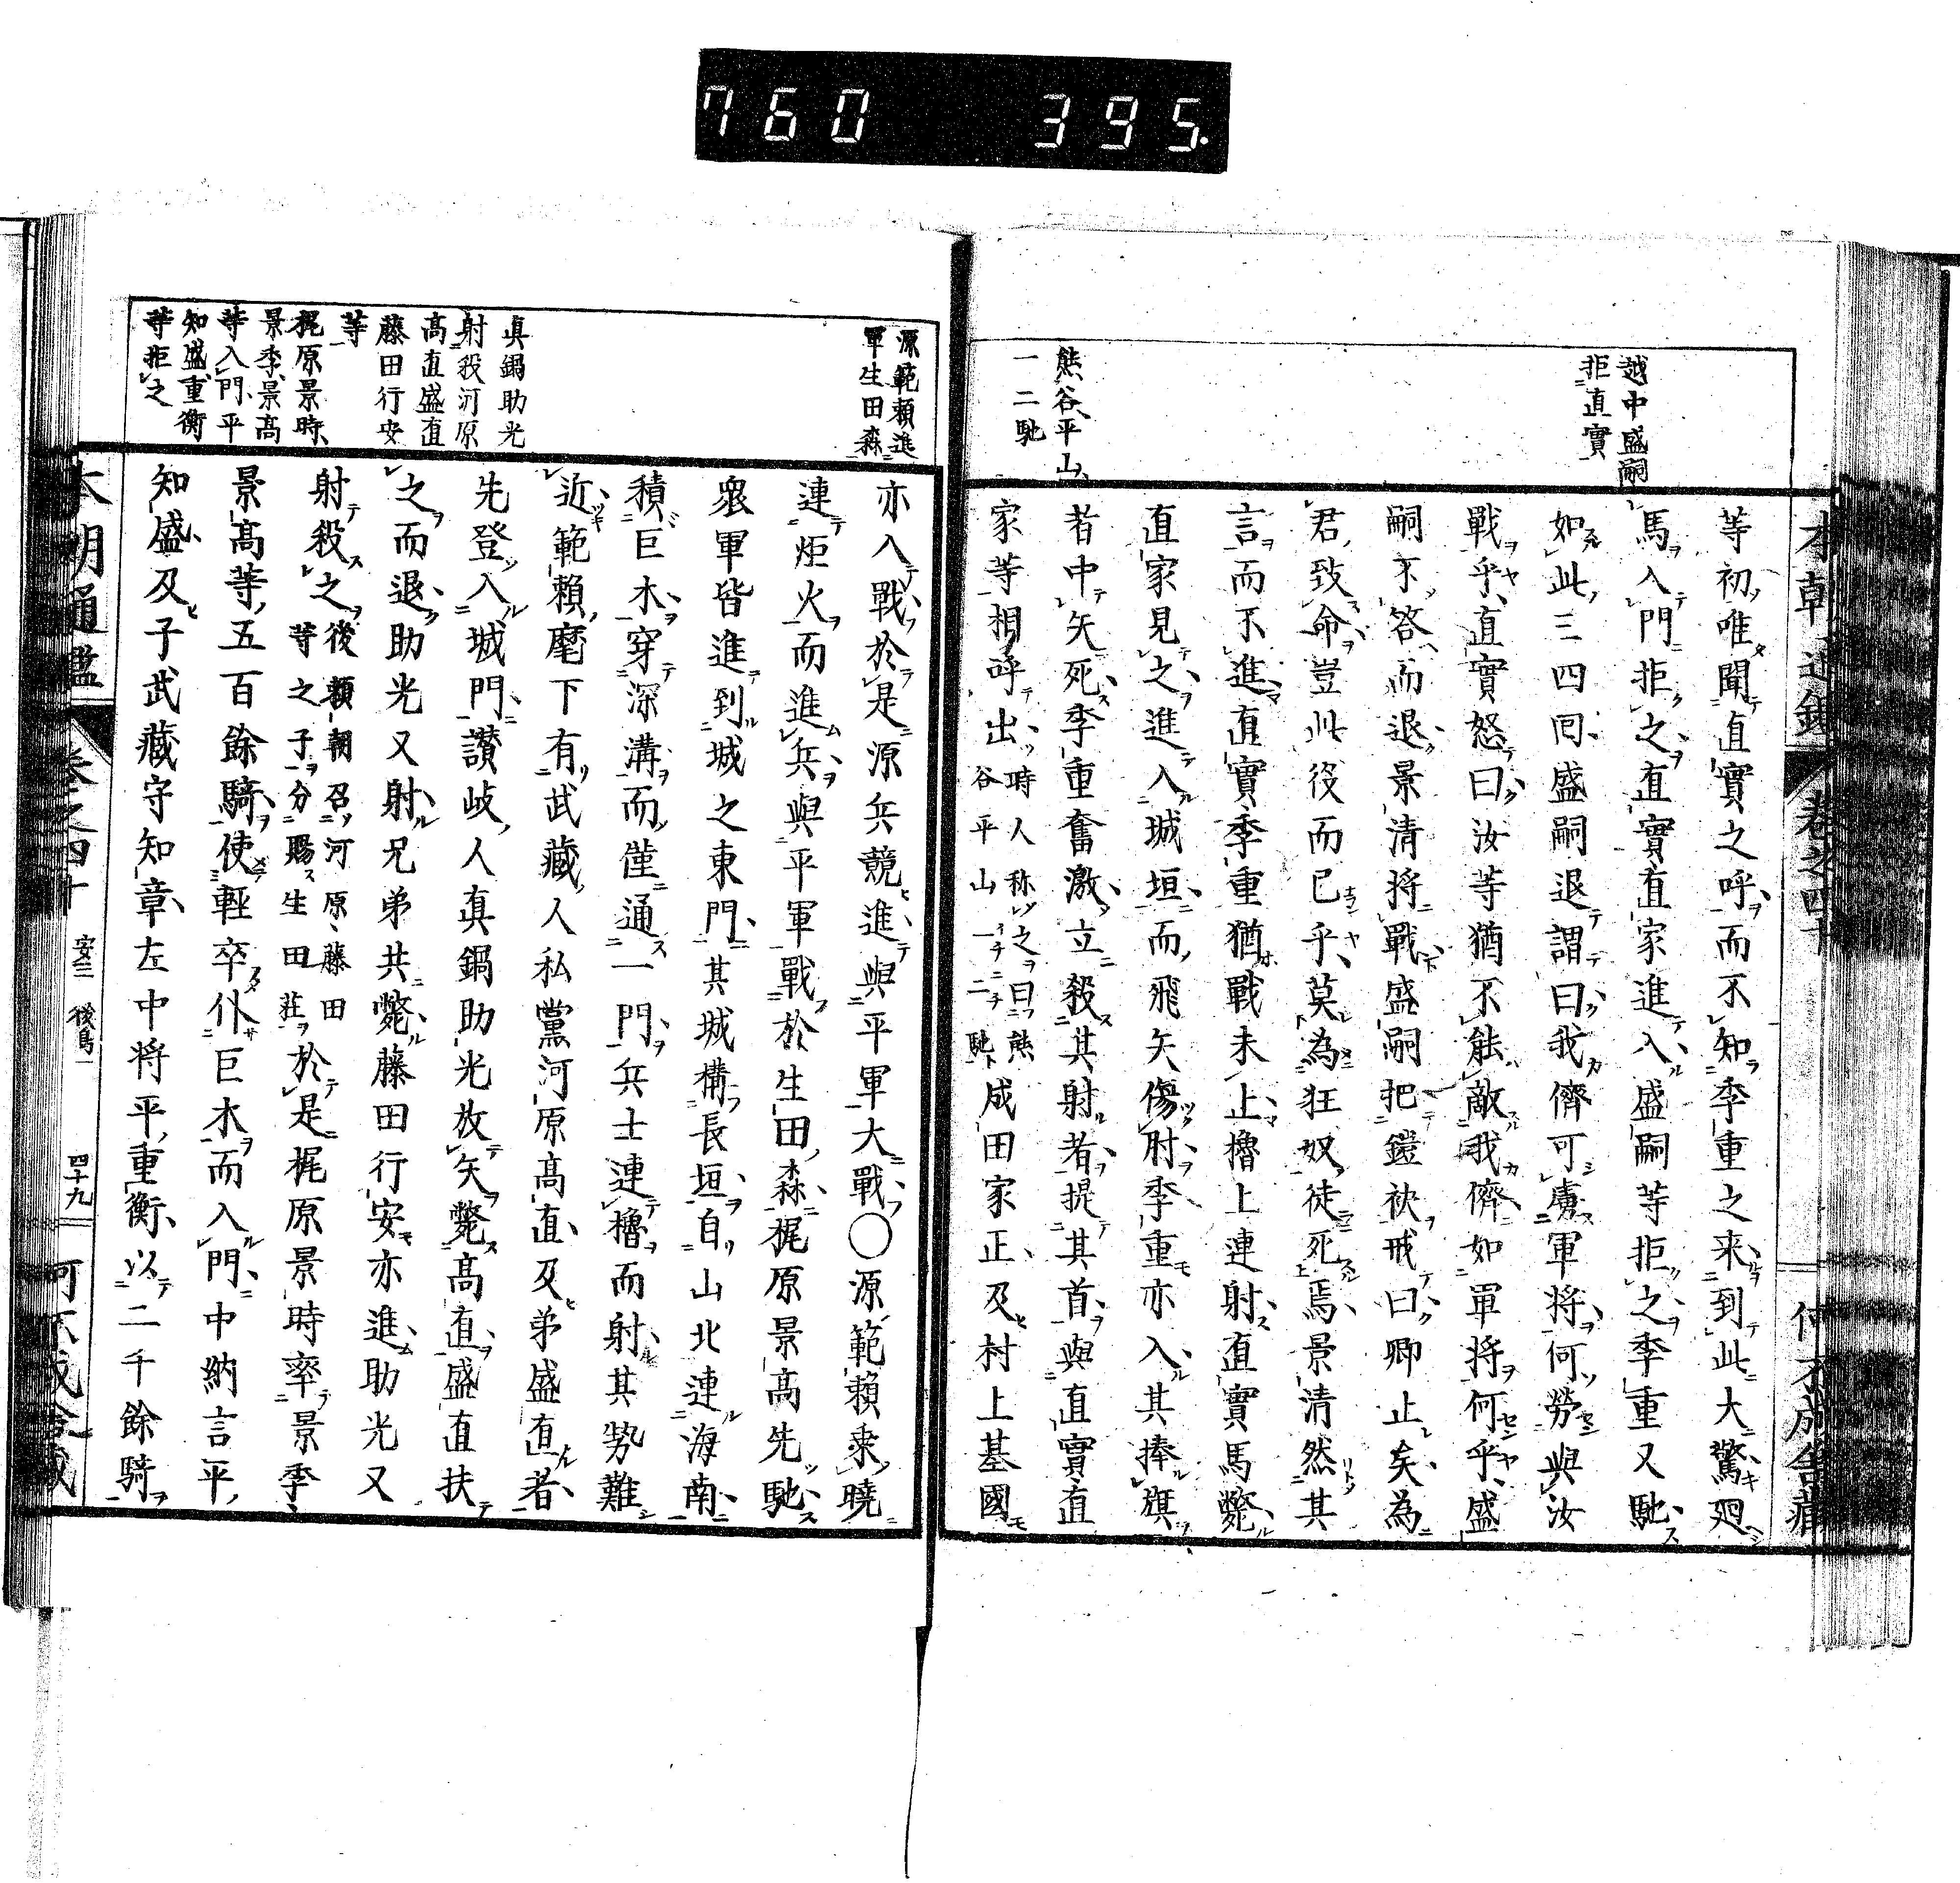 760 395.
本朝通鑑 卷之四十 何不成舍藏
越中盛嗣
拒直實
等初唯聞直實之呼而不知季重之来到此大驚廻
馬入門拒之直實直家進入盛嗣等拒之季重又馳
如此三四囘盛嗣退謂曰我儕可虜軍將何勞與汝
戰乎直實怒曰汝等猶不能敵我儕如軍将何乎盛
嗣不答而退景清将戰盛嗣把鎧袂戒曰卿止矣為
君致命豈此役而已乎莫為狂奴徒死焉景清然其
言而不進直實季重猶戰未止櫓上連射直實馬斃
直家見之進入城垣而飛矢傷肘季重亦入其捧旗
者中矢死季重奮激立殺其射者提其首與直實直
熊谷平山
一二馳
家等相呼出時人称之曰熊谷平山一二馳成田家正及村上基國
源範頼進
軍生田森
亦入戰於是源兵競進與平軍大戰〇源範頼乗曉
連炬火而進兵與平軍戰於生田森梶原景高先馳
衆軍皆進到城之東門其城構長垣自山北連海南
積巨木穿深溝而僅通一門兵士連櫓而射其勢難
近範頼麾下有武藏人私黨河原高直及弟盛直者
眞鍋助光
射殺河原
高直盛直
藤田行安
等
先登入城門讃岐人真鍋助光放矢斃高直盛直扶
之而退助光又射兄弟共斃藤田行安亦進助光又
射殺之後頼朝召河原藤田等之子分賜生田莊於是梶原景時率景季
梶原景時
景季景高
等入門平
知盛重衡
等拒之
景高等五百餘騎使輕卒仆巨木而入門中納言平
知盛及子武藏守知章左中将平重衡以二千餘騎
本朝通鑑 卷之四十 安三 後鳥一 四十九 何不成舍藏